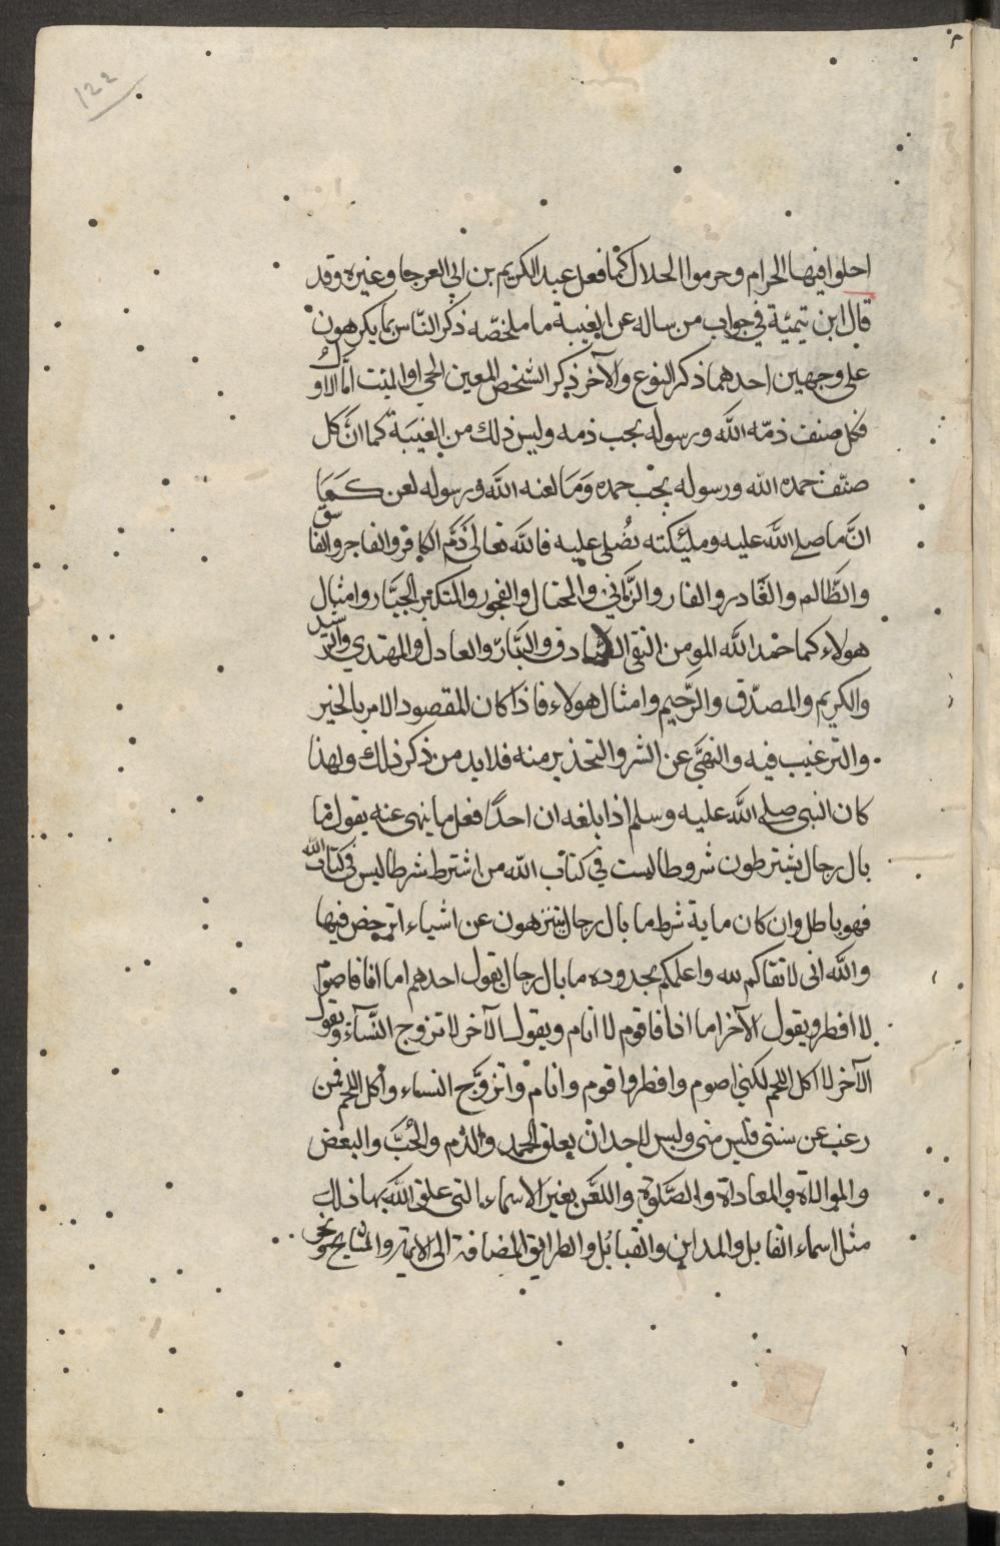 122
احلوا فيها الحرام وحرموا الحلال كما فعل عبد الكريم بن ابي العرجا وغيره وقد
قال ابن تيمئة في جواب من ساله عن الغيبة ما ملخصّه ذكر النّاس بما يكرهون
على وجهين احدهما ذكر النوع والآخر ذكر الشخص المعين الحي او الميّت امّا الاول
فكل صنف ذمّه اللّٰه ورسوله يجب ذمه وليس ذلك من الغيبَة كما انَّ كل
صنف حمده اللّٰه ورسوله يجب حمده وَمَا لعنه اللّٰه ورسوله لعن كَمَا
انَّ ما صلى اللّٰه عليه ومليٕكته يُصَلي عليه فاللّٰه تعالى ذَمَّ الكافر والفاجر والفاسق
والظَّالم والغَادر والفار والزَّاني والمختال والفجور والمتكبر الجبَّار وامثال
هولاء كما حَمد اللّٰه المومن التقي الصادق والبَارّ والعادل والمهتدي والرشيد
والكريم والمصدّق والرَّحيم وامثال هولاء فاذا كان المقصود الامر بالخير
والترغيب فيه والنهيَ عن الشر والتحذير منه فلابد من ذكر ذلك ولهذا
كان النبي صلى اللّٰه عليه وسلم اذا بلغه ان احدًا فعل ما ينهى عنه يقول ما
بال رجال يشترطون شروطا ليست في كتاب اللّٰه من اشترط شرطا ليس في كتاب اللّٰه
فهو باطل وان كان ماية شرط ما بال رجال يتنزهون عن اشياء اترخص فيها
واللّٰه اني لاتقاكم لله واعلمكم بحدوده ما بال رجال يقول احدهم اما انا فاصوم
لا افطر ويقول الآخر اما انا فاقوم لا انام ويقول الآخر لا تزوج النّسآء ويقول
الآخر لا اكل اللحم لكني اصوم وافطر واقوم وانام واتزوَّج النساء واكل اللحم فمن
رغب عن سنتي فليس مني وليس لاحد ان يعلق الحمد والذم والحُبَّ والبغض
والموالاة والمعاداة والصَّلوة واللعَن بغير الاسماء التي علق اللّٰه بها ذلك
مثل اسماء القبايل والمداين والقبائل والطرايق المضافة الى الايمة والمشايخ ونحو